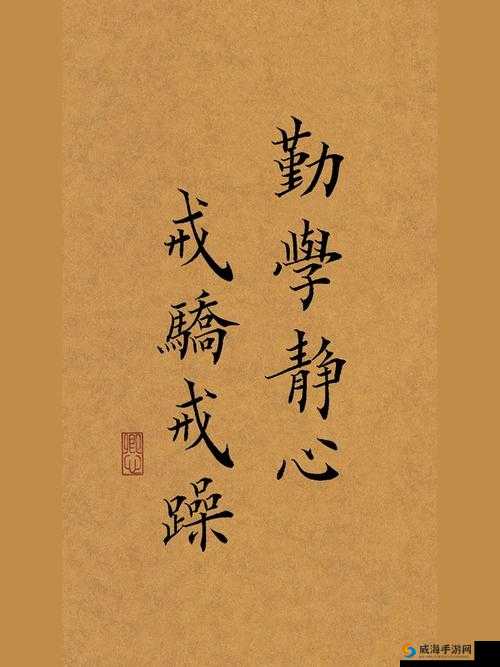 勤學静心
戒驕戒躁
威海手游网